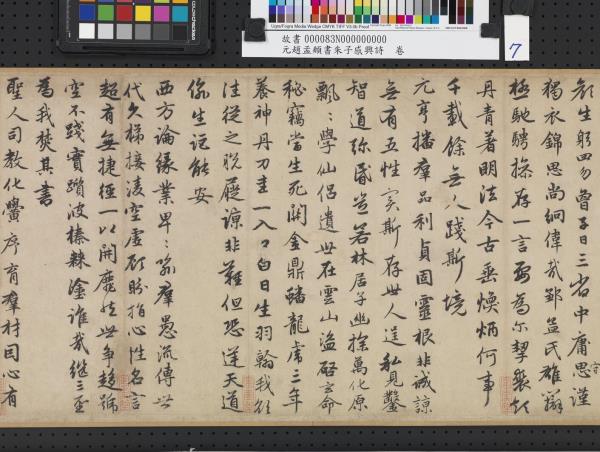 故書 000083N000000000
元趙孟頫書朱子感興詩 卷
7
顔生躬四勿曾子日三省中庸思謹
獨衣錦思尚絅偉哉鄒孟氏雄辯
極馳騁操存一言要為尔挈裘領
丹青著明法今古垂煥炳何事
千載餘無人踐斯境
元亨播羣品利貞固靈根非誠諒
無有五性實斯存世人逞私見鑿
智道弥昏豈若林居子幽探萬化原
飄〻學仙侶遺世在雲山盜啓玄命
秘竊當生死關金鼎蟠龍虎三年
養神丹刀圭一入口白日生羽翰我欲
往從之脫屣諒非難但恐逆天道
偷生詎能安
西方論緣業卑〻喻羣愚流傳世
代久梯接凌空虛顧盼指心性名言
超有無捷徑一以開靡然世争趨號
空不踐實躓彼榛棘塗誰哉繼三聖
為我焚其書
聖人司教化黌序育羣材因心有